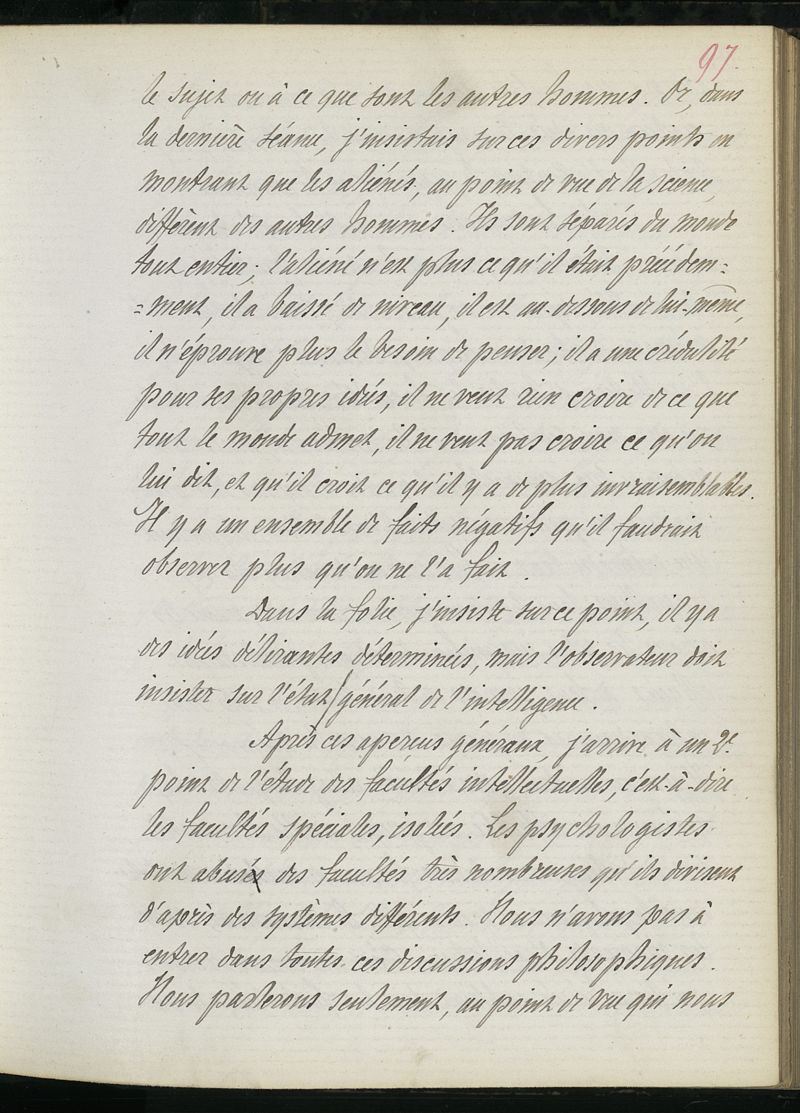 97
le sujet ou à ce que sont les autres hommes. Or, dans
la dernière séance, j'insistais sur ces divers points en
montrant que les aliénés, au point de vue de la science,
diffèrent des autres hommes. Ils sont séparés du monde
tout entier; l'aliéné n'est plus ce qu'il était précédem=
=ment, il a baissé de niveau, il est au-dessous de lui-même,
il n'éprouve plus le besoin de penser; il a une crédulité
pour ses propres idées, il ne veut rien croire de ce que
tout le monde admet, il ne veut pas croire ce qu'on
lui dit, et qu'il croit ce qu'il y a de plus invraisemblables.
Il y a un ensemble de faits négatifs qu'il faudrait
observer plus qu'on ne l'a fait.
Dans la folie, j'insiste sur ce point, il y a
des idées délirantes déterminées, mais l'observateur doit
insister sur l'état général de l'intelligence.
Après ces aperçus généraux, j'arrive à un 2e
point de l'étude des facultés intellectuelles, c'est-à-dire
les facultés spéciales, isolées. Les psychologistes
ont abusé des facultés très nombreuses qu'ils divisent
d'après des systèmes différents. Nous n'avons pas à
entrer dans toutes ces discussions philosophiques.
Nous parlerons seulement, au point de vue qui nous